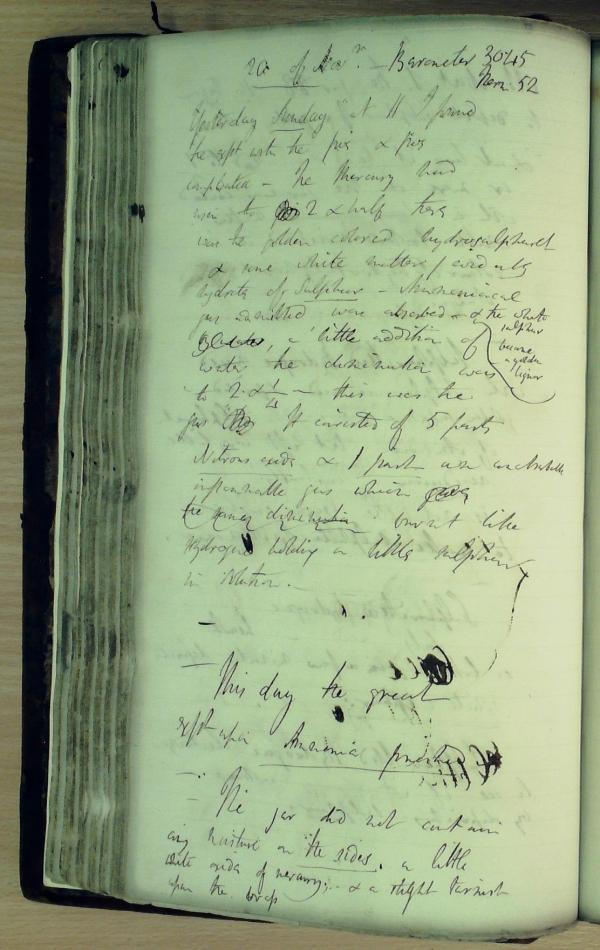 20 of Barometer 30.45
Ther. 52
Yesterday Sunday at 11 I found
the expt with the
completed – The Mercury had
risen to 2 & half there
was the golden colored hydrosulphuret
& some white matter / evidently
hydrate of sulphur – Ammoniacal
gas admitted were absorbed – & the white
sulphur
became
a golden
liquor
a little addition of
water the diminution was
to 2 & 1/4 – this was the
gas It consisted of 5 parts
Nitrous oxide & 1 part an unabsorbable
inflammable gas which gave
the same diminution burnt like
Hydrogene holding a little sulphur
in solution. –
This day the great
expt upon Ammonia
The jar did not contain
any moisture on the sides, a little
white oxide of mercury; & a slight tarnish
upon the